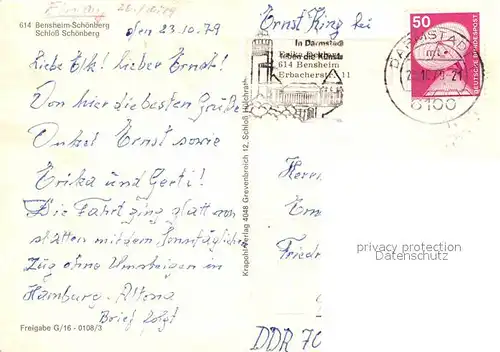 28/10/79
614 Bensheim-Schönberg
Schloß Schönberg
den 23.10.79
Liebe Elk! lieber Ernst!
Von hier die besten Grüße
Onkel Ernst sowie
Erika und Gerti!
Die Fahrt ging glatt von
statten mit dem Sonntäglichen
Zug ohne Umsteigen in
Hamburg-Altona
Brief folgt
Freigabe G/16 - 0108/3
Krapohl-Verlag 4048 Grevenbroich 12, Schloß Hülchrath
Ernst King bei
In Darmstadt
leben die Künste
614 Bensheim
Erbacherstr. 11
50
DEUTSCHE BUNDESPOST
DARMSTADT
6100
Herrn
Ern
Friedr
DDR 70
privacy protection
Datenschutz